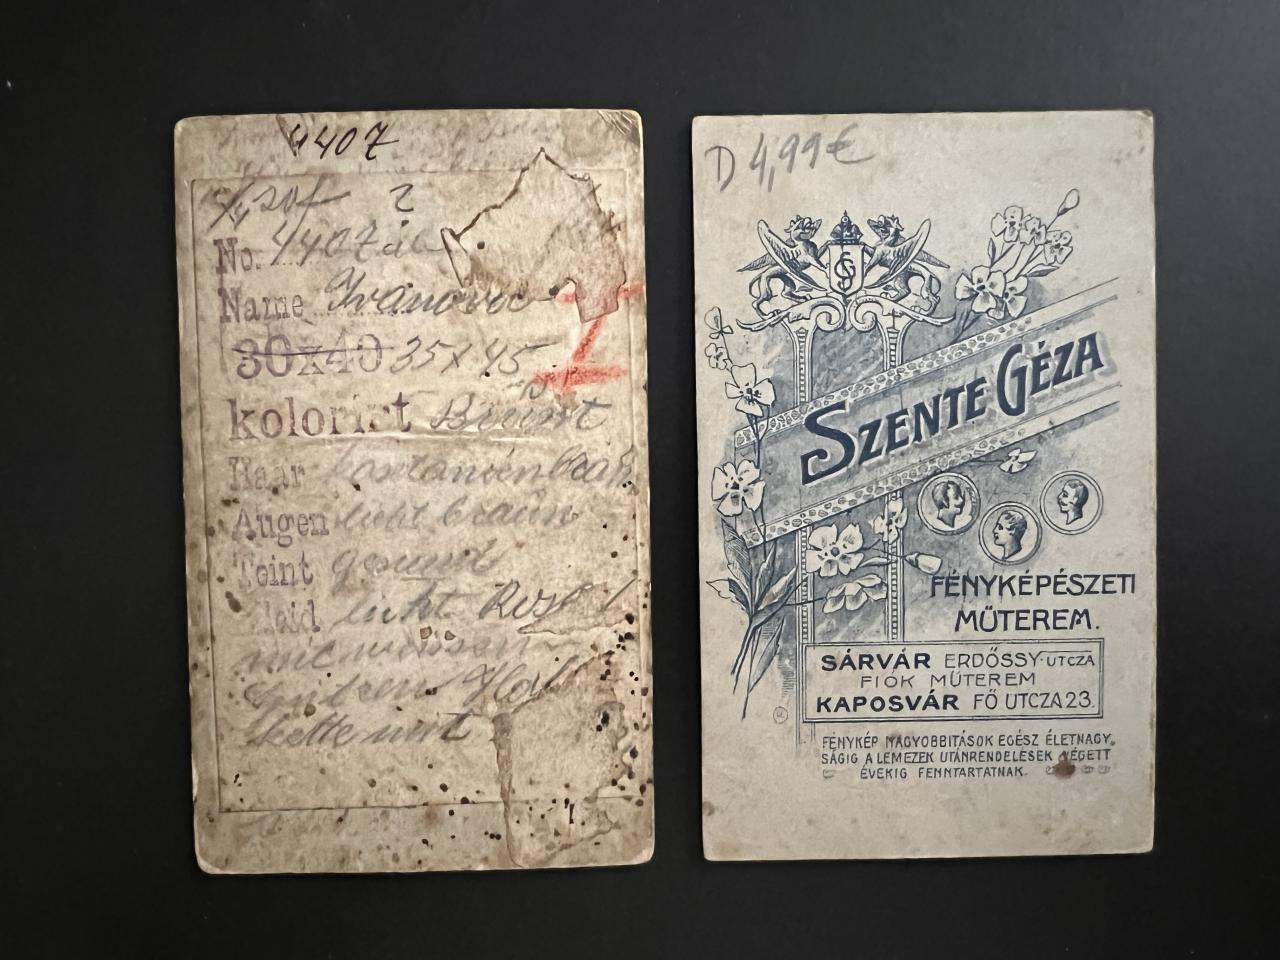 4407
No. 4407
Name Ivanovic
30x40 35 x 45
kolorirt
Haar kastanienbraun
Augen licht braun
Teint gesund
Kleid licht Rosa
mit weissen
kette mit
D 4,99 €
SG
SZENTE GÉZA
FÉNYKÉPÉSZETI
MŰTEREM.
SÁRVÁR ERDŐSSY-UTCZA
FIÓK MŰTEREM
KAPOSVÁR FŐ UTCZA 23.
FÉNYKÉP NAGYOBBITÁSOK EGÉSZ ÉLETNAGY,
SÁGIG A LEMEZEK UTÁNRENDELÉSEK VÉGETT
ÉVEKIG FENNTARTATNAK.